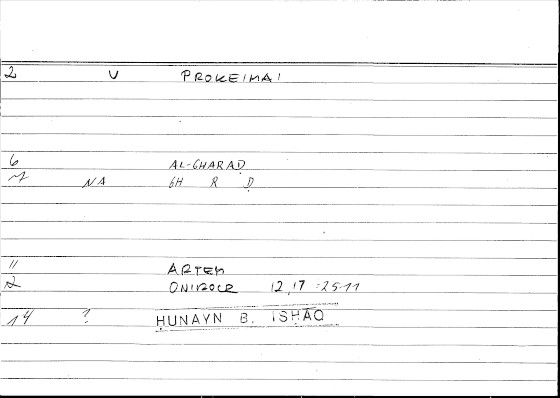 2 V PROKEIMAI
6 AL-GHARAḌ
7 NA GH R Ḍ
11 ARTEM
12 ONIROCR 12,17 = 25.11
14 ? ḤUNAYN B. ISḤĀQ